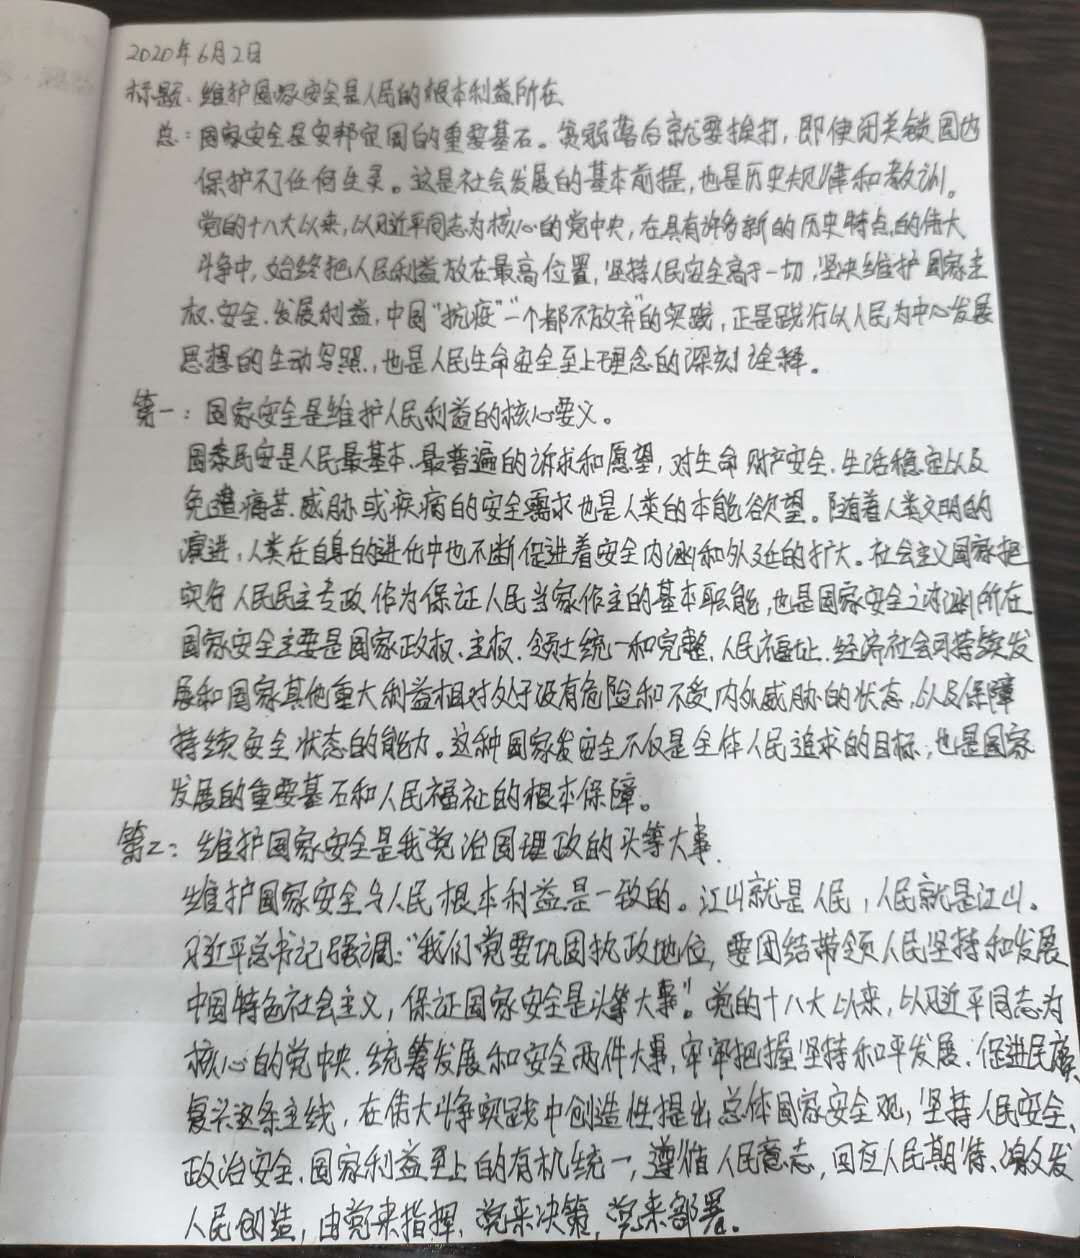 2020年6月2日
标题：维护国家安全是人民的根本利益所在
总：国家安全是安邦定国的重要基石。贫弱落后就要挨打，即使闭关锁国也
保护不了任何生灵。这是社会发展的基本前提，也是历史规律和教训。
党的十八大以来，以习近平同志为核心的党中央，在具有许多新的历史特点的伟大
斗争中，始终把人民利益放在最高位置，坚持人民安全高于一切，坚决维护国家主
权、安全、发展利益，中国"抗疫""一个都不放弃"的实践，正是践行以人民为中心发展
思想的生动写照，也是人民生命安全至上理念的深刻诠释。
第一：国家安全是维护人民利益的核心要义。
国泰民安是人民最基本、最普遍的诉求和愿望，对生命财产安全、生活稳定以及
免遭痛苦、威胁或疾病的安全需求也是人类的本能欲望。随着人类文明的
演进，人类在自身的进化中也不断促进着安全内涵和外延的扩大。社会主义国家把
实行人民民主专政作为保证人民当家作主的基本职能，也是国家安全之内涵所在
国家安全主要是国家政权、主权、领土统一和完整、人民福祉、经济社会可持续发
展和国家其他重大利益相对处于没有危险和不受内外威胁的状态，以及保障
持续安全状态的能力。这种国家安全不仅是全体人民追求的目标，也是国家
发展的重要基石和人民福祉的根本保障。
第二：维护国家安全是我党治国理政的头等大事.
维护国家安全与人民根本利益是一致的。江山就是人民，人民就是江山。
习近平总书记强调："我们党要巩固执政地位，要团结带领人民坚持和发展
中国特色社会主义，保证国家安全是头等大事"。党的十八大以来，以习近平同志为
核心的党中央、统筹发展和安全两件大事，牢牢把握坚持和平发展、促进民族
复兴这条主线，在伟大斗争实践中创造性提出总体国家安全观，坚持人民安全、
政治安全、国家利益至上的有机统一，遵循人民意志，回应人民期待、激发
人民创造，由党来指挥、党来决策，党来部署。